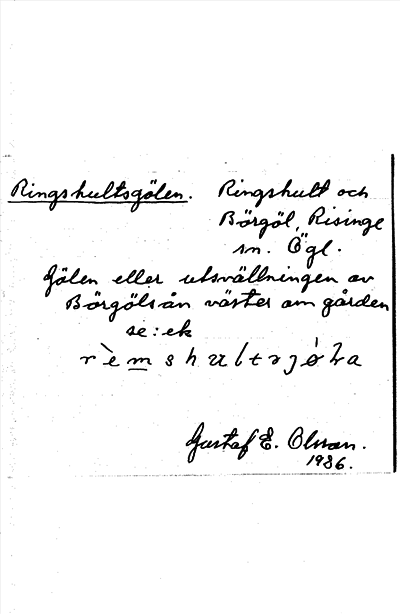 Ringshultsgölen. Ringshult och
Börgöl, Risinge
sn. Ögl.
Gölen eller utsvällningen av
Börgölsån väster om gården
se: ek
Gustaf E. Olsson.
1936.